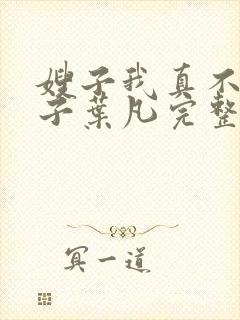 嫂子我真不
子葉凡完整
冥一道